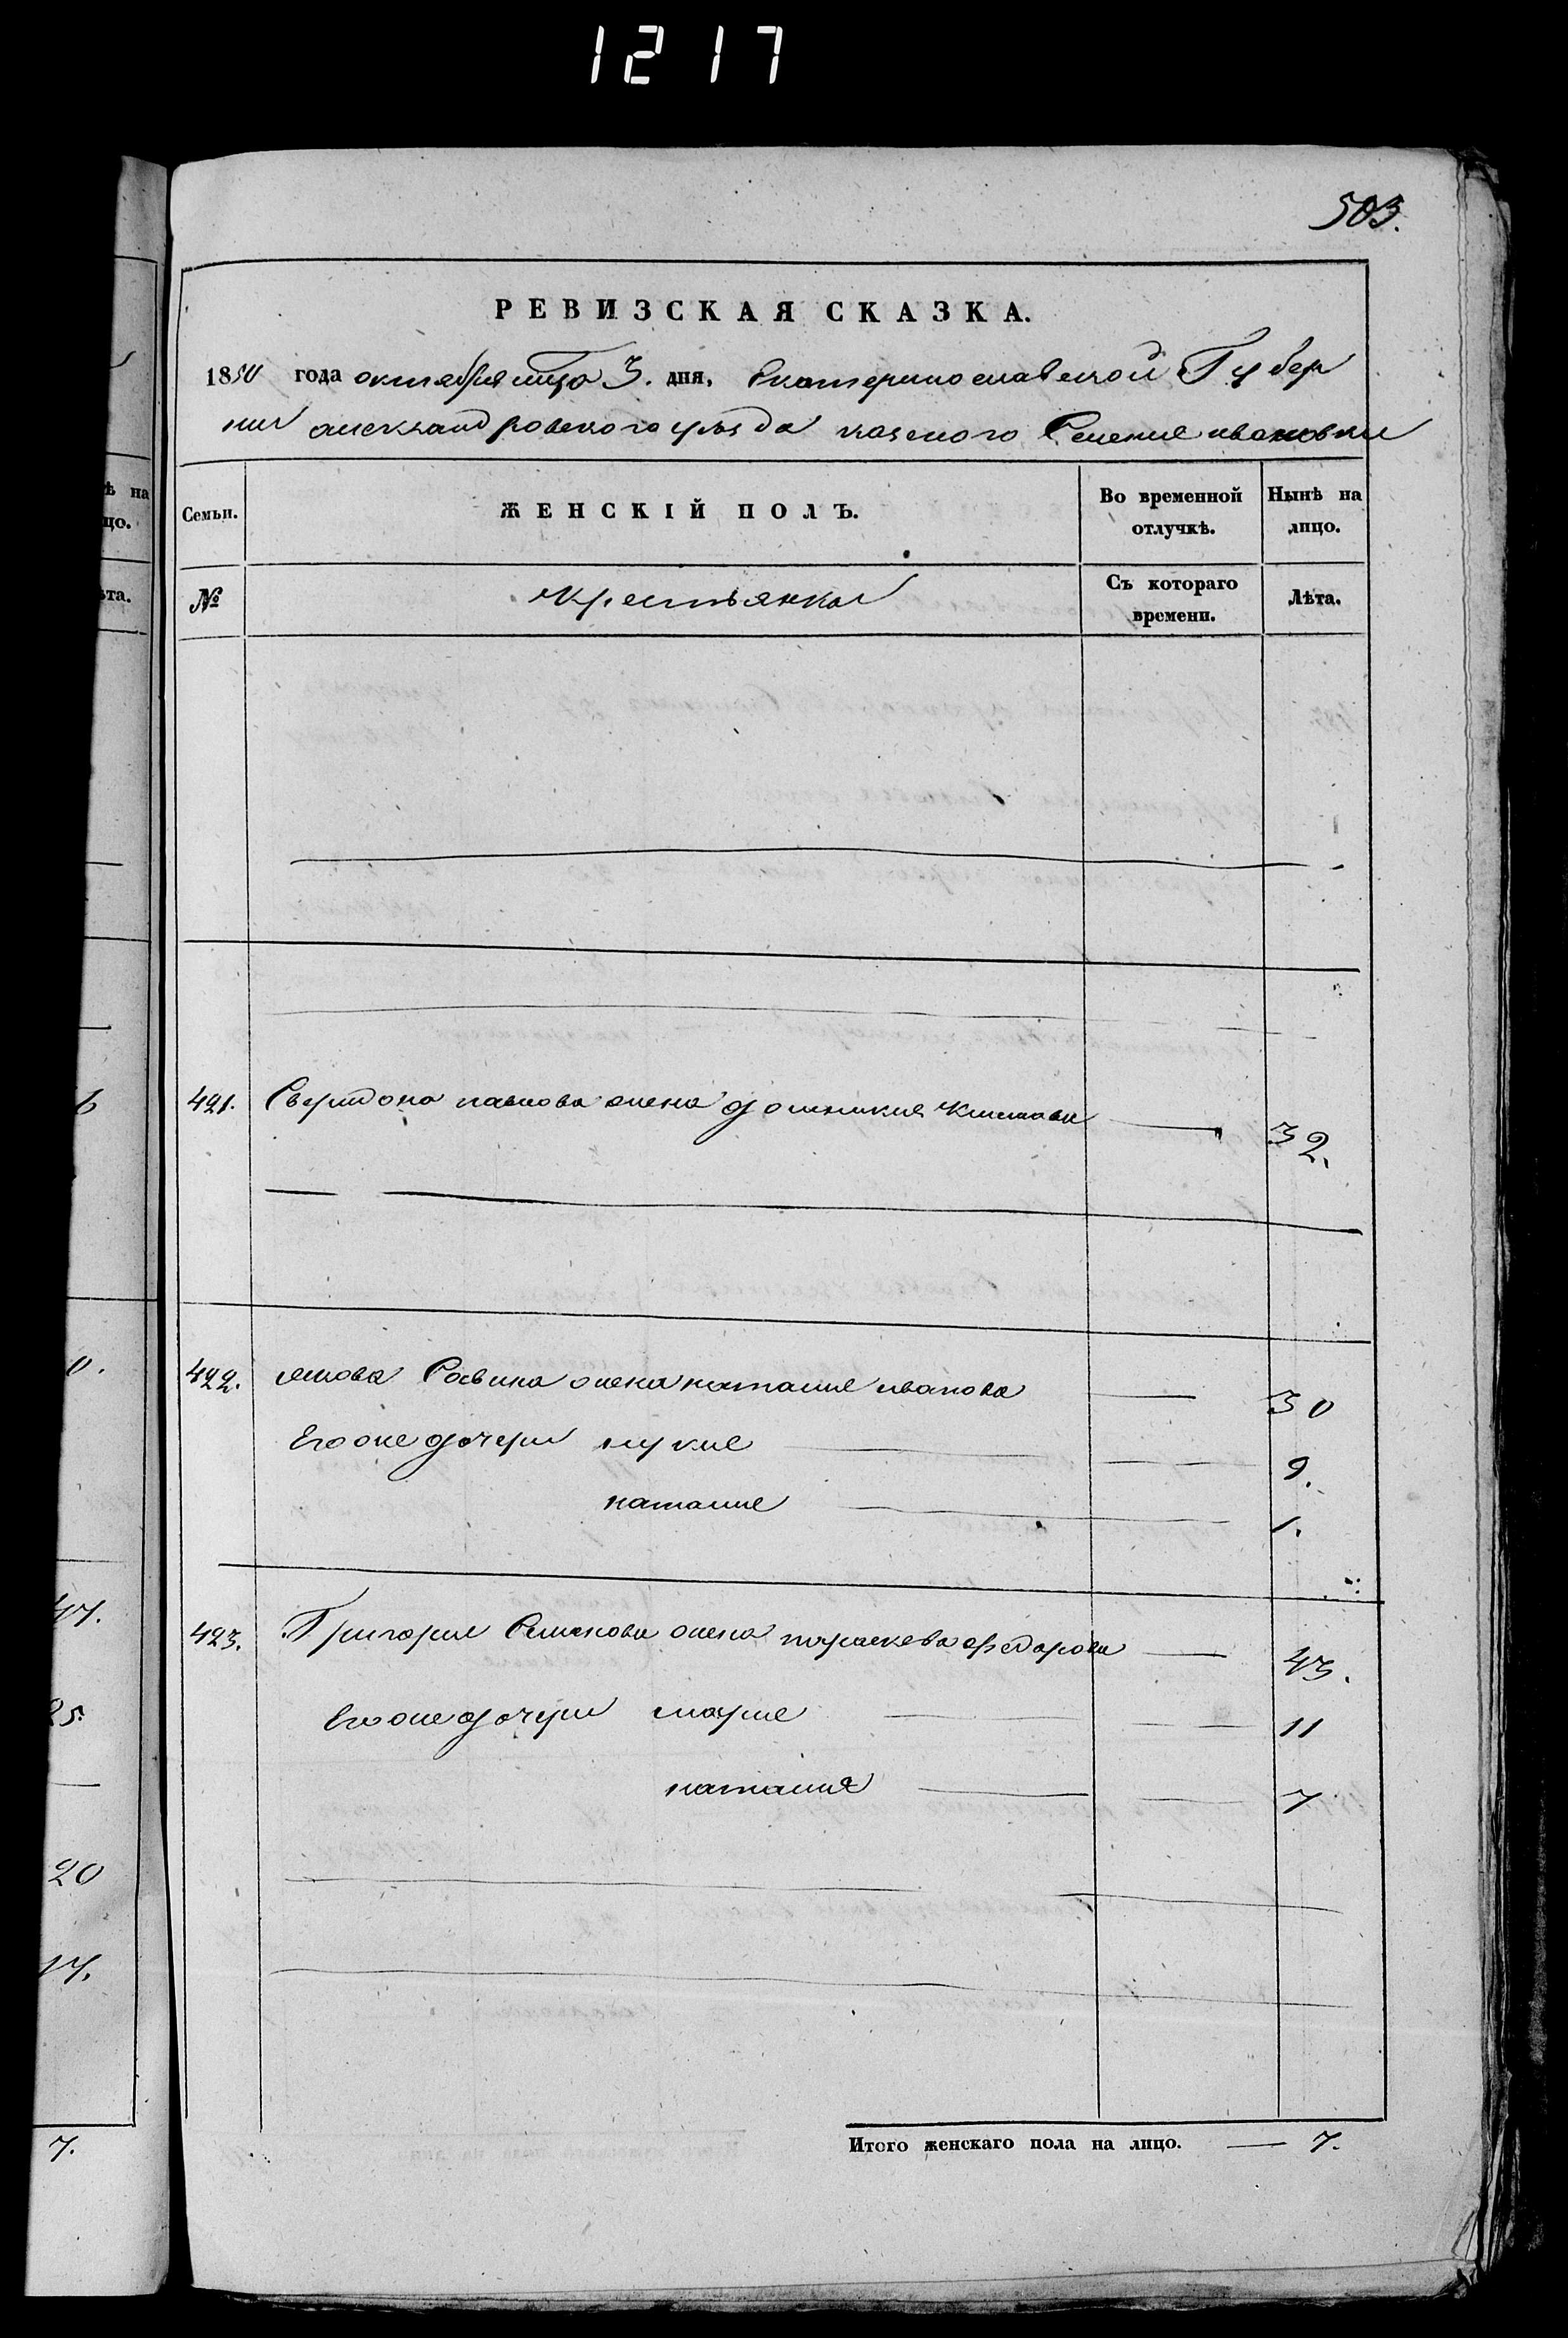 1217
503.
РЕВИЗСКАЯ СКАЗКА.
1850 года октября мца 3. дня, Екатеринославской Губер
нии александровского уезда казеного Селения ивановки
ѣ на
цо.
Семьи.
ЖЕНСКІЙ ПОЛЪ.
Во временной
отлучкѣ.
Нынѣ на
лицо.
ѣта.
№
крестьянка
Съ котораго
времени.
Лѣта.
6
421. Свиридона павлова жена домникия климова 32.
0.
422. якова Савина жена наталия иванова 30
Его же дочери лукия 9.
наталия 1.
47.
423. Григория Семенова жена параскева федорова 43.
Его же дочери мария 11
25.
наталия 7
20
17.
7.
Итого женскаго пола на лицо. 7.